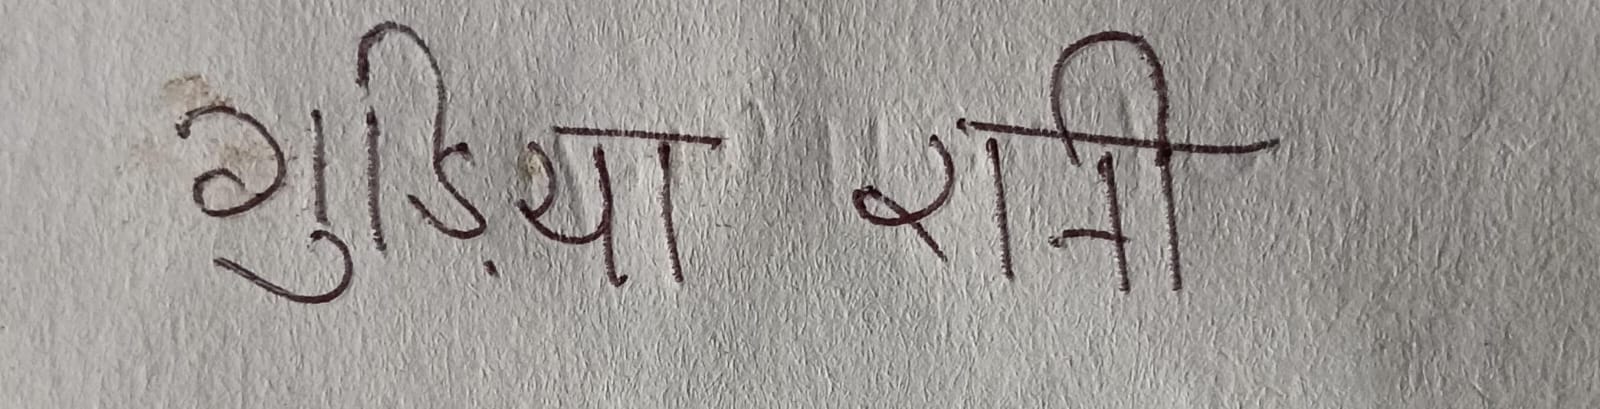 गुड़िया रानी